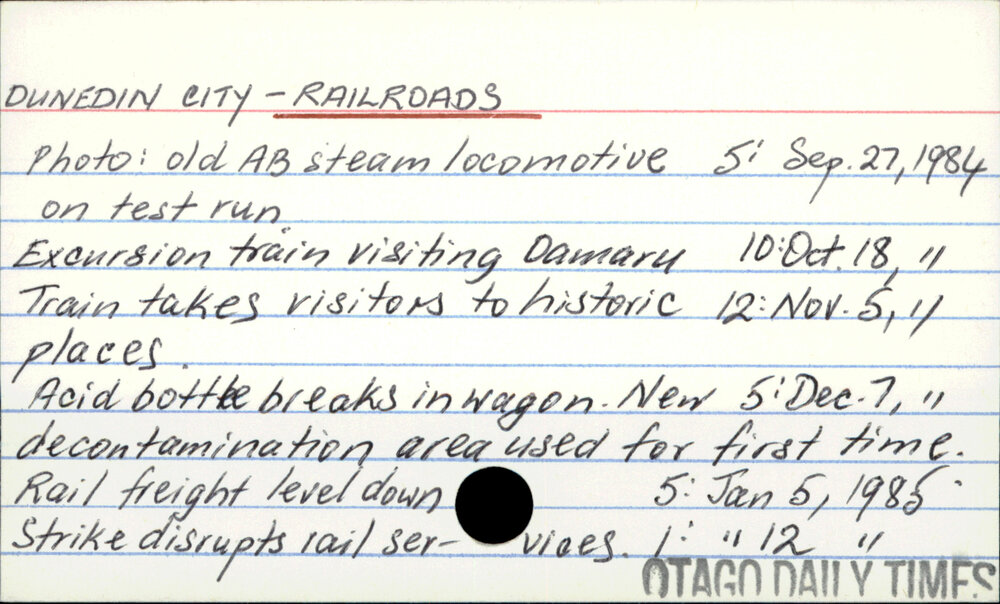 DUNEDIN CITY - RAILROADS
Photo: old AB steam locomotive 5: Sep. 27, 1984
on test run.
Excursion train visiting Oamaru 10: Oct. 18, "
Train takes visitors to historic 12: Nov. 5, "
places.
Acid bottle breaks in wagon. New 5: Dec. 7, "
decontamination area used for first time.
Rail freight level down 5: Jan 5, 1985
Strike disrupts rail ser- vices. 1: " 12 "
OTAGO DAILY TIMES